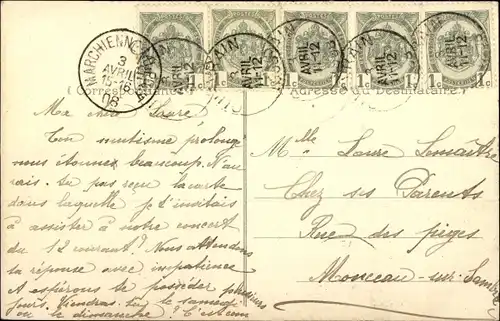 MARCHIENNE
3
AVRIL
15-16
08
POSTES POSTES POSTES POSTES POSTES
1c 1c 1c 1c 1c
3
AVRIL
11-12
(Corres
Adresse du Destinataire.)
Ma chère Laure
Ton mutisme prolongé
nous étonne beaucoup. N'au
rais-tu pas reçu la carte
dans laquelle je t'invitais
à assister à notre concert
du 12 courant? Nous attendons
ta réponse avec impatience
et espérons te posséder plusieurs
jours. Viendras-tu le samedi
ou le dimanche? C'est
Melle Laure Lemaître
Chez ses Parents
Rue des piges
Monceau-sur-Sambre